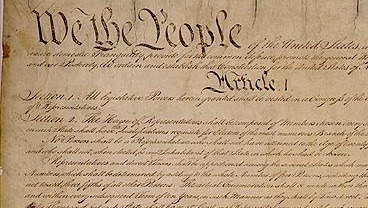 We the People of the United States, in
insure domestic Tranquility, provide for the common defence, promote the general
and our Posterity, do ordain and establish this Constitution for the United States of
Article. I.
Section. 1. All legislative Powers herein granted shall be vested in a Congress of the
of Representatives.
Section. 2. The House of Representatives shall be composed of Members chosen every
in each State shall have Qualifications requisite for Electors of the most numerous Branch of the
No Person shall be a Representative who shall not have attained to the Age of twenty
and who shall not, when elected, be an Inhabitant of that State in which he shall be chosen.
Representatives and direct Taxes shall be apportioned among the several States which may
Numbers, which shall be determined by adding to the whole Number of free Persons, including
not taxed, three fifths of all other Persons. The actual Enumeration shall be made
and within every subsequent Term of ten Years, in such Manner as they shall by Law